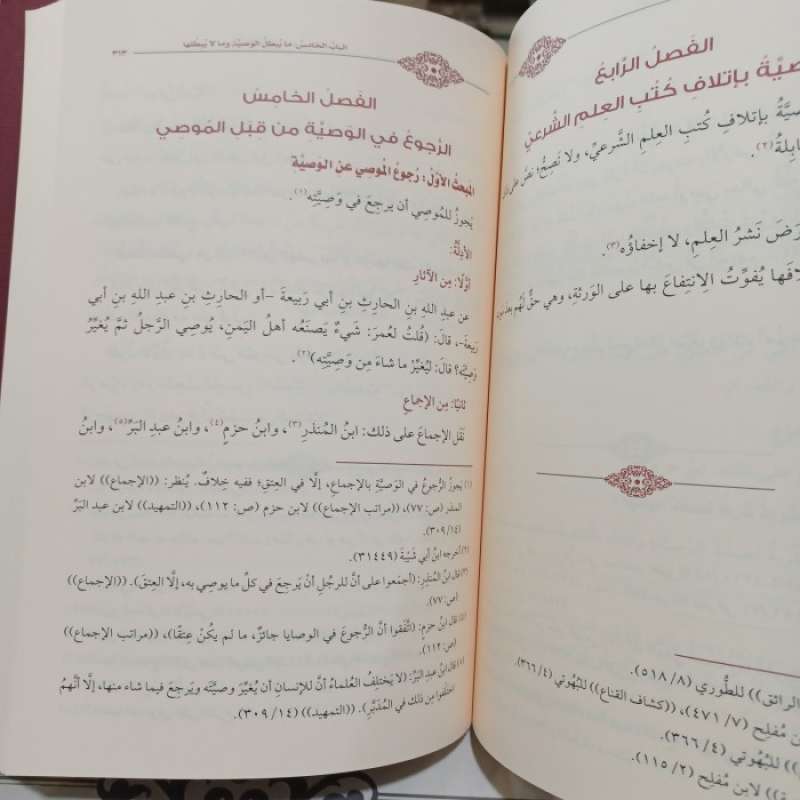 الفَصلُ الرَّابِعُ
يَّةُ بإتلافِ كُتُبِ العِلمِ الشَّرعيِّ
يَّةُ بإتلافِ كُتبِ العِلمِ الشَّرعيِّ، ولا تَصِحُّ؛ نصَّ على
ابِلةُ(٢).
رَضَ نَشرُ العِلمِ، لا إخفاؤُه(٣).
لافَها يُفوِّتُ الِانتِفاعَ بها على الوَرَثةِ، وهي حقٌّ لهُم
الرائق)) للطُّوري (٨/ ٥١٨).
ن مُفلِح (٧/ ٤٧١)، ((كشاف القناع)) للبُهُوتي (٤/ ٣٦٦).
)) للبُهُوتي (٤/ ٣٦٦).
)) لابن مُفلِح (٢/ ١١٥).
البابُ الخامِسُ: ما يُبطِلُ الوَصيَّةَ وما لا يُبطِلُها
٣١٣
الفَصلُ الخامِسُ
الرُّجوعُ في الوَصيَّةِ من قِبَلِ المُوصي
المَبحثُ الأوَّلُ: رُجوعُ المُوصي عن الوَصيَّةِ
يَجوزُ للمُوصي أن يرجِعَ في وَصيَّتِه(١).
الأدِلَّةُ:
أوَّلًا: مِن الآثارِ
عن عبدِ اللهِ بنِ الحارِثِ بنِ أبي رَبيعةَ -أو الحارِثِ بنِ عبدِ اللهِ بنِ أبي
رَبيعةَ-، قالَ: (قُلتُ لعُمرَ: شَيءٌ يَصنَعُه أهلُ اليَمنِ، يُوصي الرَّجلُ ثمَّ يُغيِّرُ
وَصيَّتَه؟ قالَ: ليُغيِّرْ ما شاءَ مِن وَصيَّتِه)(٢).
ثانيًا: مِن الإجماعِ
نَقَل الإجماعَ على ذلك: ابنُ المُنذرِ(٣)، وابنُ حَزمٍ(٤)، وابنُ عبدِ البَرِّ(٥)، وابنُ
(١) يَجوزُ الرُّجوعُ في الوَصيَّةِ بالإجماعِ، إلَّا في العِتقِ؛ ففيه خِلافٌ. يُنظر: ((الإجماع)) لابن
المنذر (ص: ٧٧)، ((مراتب الإجماع)) لابن حزم (ص: ١١٢)، ((التمهيد)) لابن عبد البَرِّ
(١٤/ ٣٠٩).
(٢) أخرجه ابنُ أبي شَيْبةَ (٣١٤٤٩).
(٣) قال ابنُ المُنذِرِ: (أجمَعوا على أنَّ للرجُلِ أنْ يَرجِعَ في كلِّ ما يوصي به، إلَّا العِتقَ). ((الإجماع))
(ص: ٧٧).
(٤) قال ابنُ حزمٍ: (اتَّفَقوا أنَّ الرُّجوعَ في الوصايا جائزٌ، ما لم يكُنْ عِتقًا)، ((مراتب الإجماع))
(ص: ١١٢).
(٥) قال ابنُ عبد البَرِّ: (لا يَختلِفُ العُلماءُ أنَّ للإنسانِ أن يُغيِّرَ وصيَّتَه ويَرجِعَ فيما شاء منها، إلَّا أنَّهُم
اختَلَفوا مِن ذلك في المُدَبَّرِ). ((التمهيد)) (١٤/ ٣٠٩).